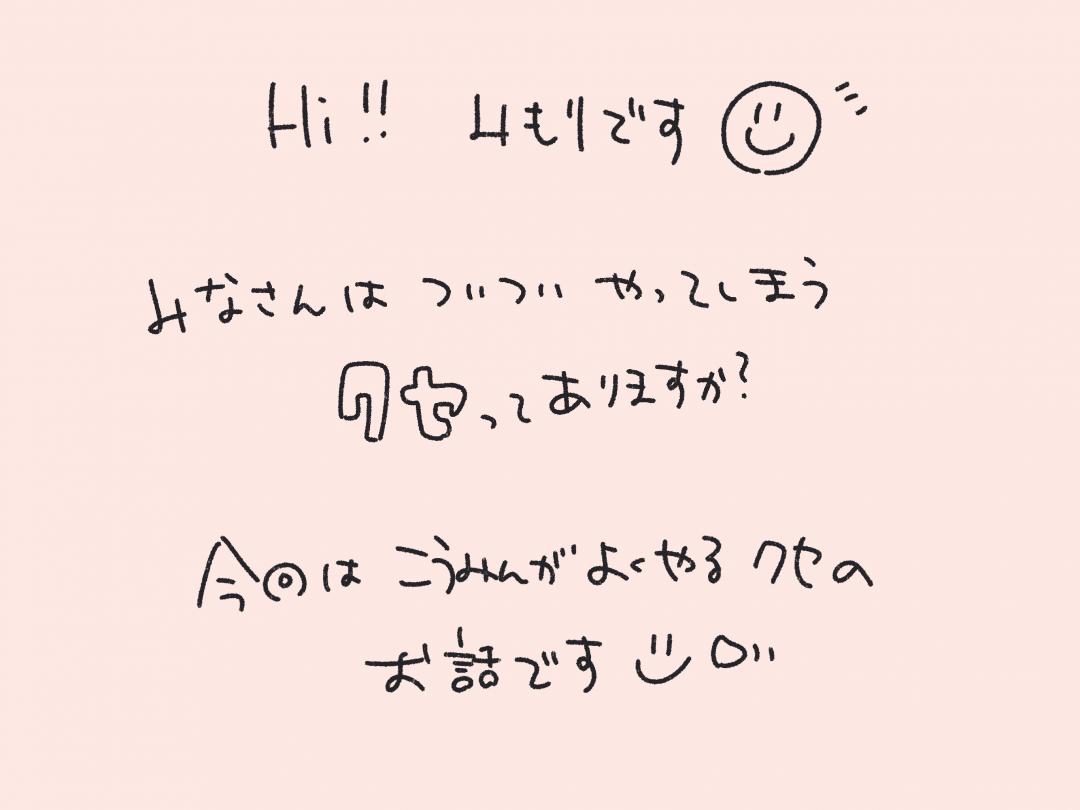 Hi!! みもりです
みなさんは ついつい やってしまう
クセってありますか?
今日は こうみんがよくやる クセの
お話です